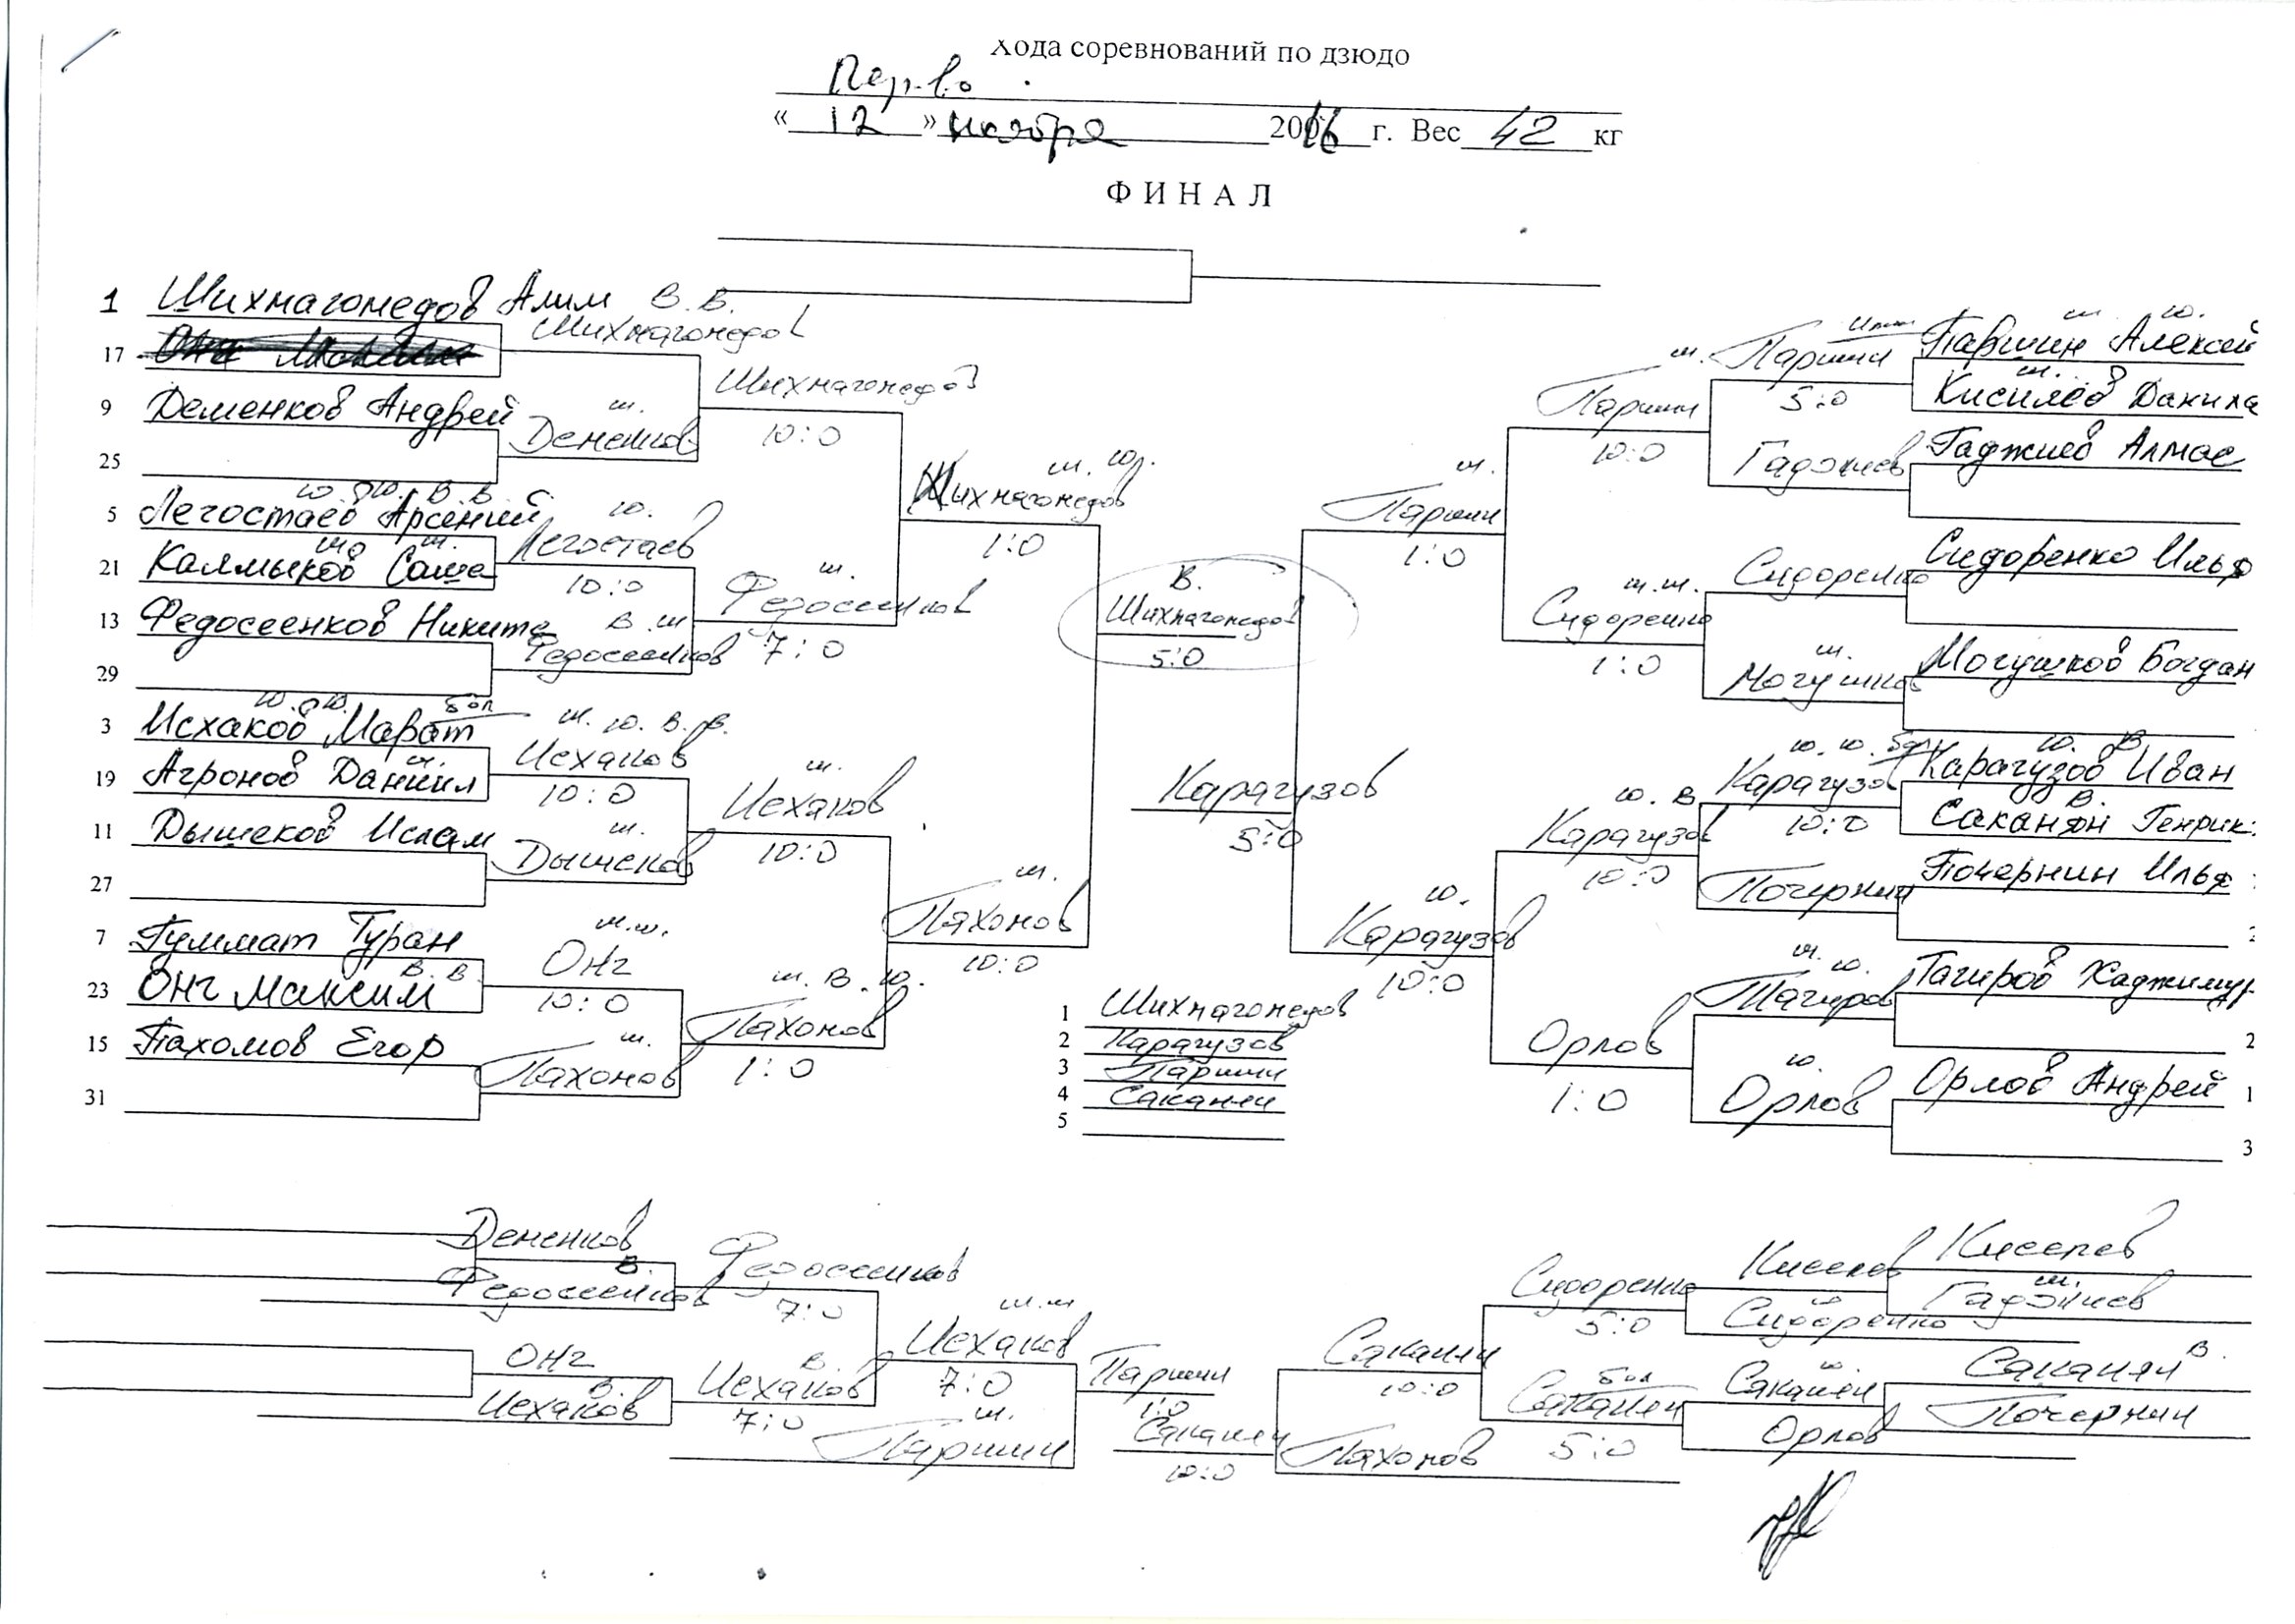 Хода соревнований по дзюдо
Пер-во
« 12 » ноября 2016 г. Вес 42 кг
ФИНАЛ
1 Шихмагомедов Алим В.В.
17
9 Деменков Андрей
25
ю. ю. В.В.
5 Легостаев Арсений
21 Калмыков Саша
13 Федосеенков Никита
29
3 Исхаков Марат бол
19 Агронов Даниил
11 Дышеков Ислам
27
7 Гуммат Туран
В.В.
23 Онг Максим
15 Пахомов Егор
31
Шихмагомедов
ш.
Деменков
ю.
Легостаев
10:0
В.ш
Федосеенков
ш. ю. В.В.
Исхаков
10:0
ш.
Дышеков
ш.ш.
Онг
10:0
ш.
Пахомов
Шихмагомедов
10:0
ш.
Федосеенков
7:0
ш.
Исхаков
10:0
ш. В. ю.
Пахомов
1:0
ш. ю.
Шихмагомедов
1:0
ш.
Пахомов
10:0
В.
Шихмагомедов
5:0
Карагузов
5:0
ш.
Паршин
1:0
ю.
Карагузов
10:0
ш.
Паршин
10:0
ш.ш.
Сидоренко
1:0
ю. В
Карагузов
10:0
Орлов
1:0
Паршин
5:0
Гаджиев
Сидоренко
ш.
Могушков
ю. ю. бол
Карагузов
10:0
Почернин
ш. ю.
Тагиров
ю.
Орлов
ш. ю.
Паршин Алексей
ш.
Кисилёв Данила
Гаджиев Алмас
Сидоренко Илья
Могушков Богдан
ю. В
Карагузов Иван
В.
Саканян Генрик
Почернин Илья
2
Тагиров Хаджимур
2
Орлов Андрей 1
3
1 Шихмагомедов
2 Карагузов
3 Паршин
4 Саканян
5
Деменков
В.
Федосеенков
Онг
В.
Исхаков
Федосеенков
7:0
В.
Исхаков
7:0
ш.ш
Исхаков
7:0
ш.
Паршин
Паршин
1:0
Саканян
10:0
Саканян
10:0
Пахомов
Сидоренко
5:0
бол
Саканян
5:0
Киселев
ю
Сидоренко
ю.
Саканян
Орлов
Киселев
ш.
Гаджиев
Саканян В.
Почернин